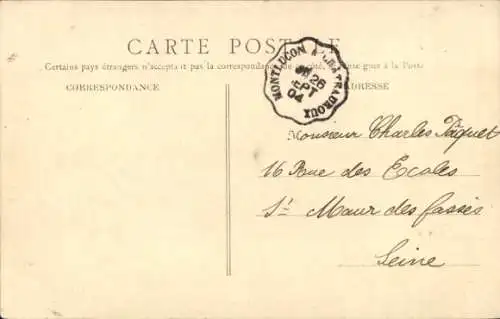 CARTE POSTALE
Certains pays étrangers n'acceptent pas la correspondance de ce côté, se rense gner à la Poste
CORRESPONDANCE
ADRESSE
MONTLUCON A LAVAUFRANCHE
26
SEPT
04
Monsieur Charles Paquet
16 Rue des Ecoles
St Maur des fossés
Seine